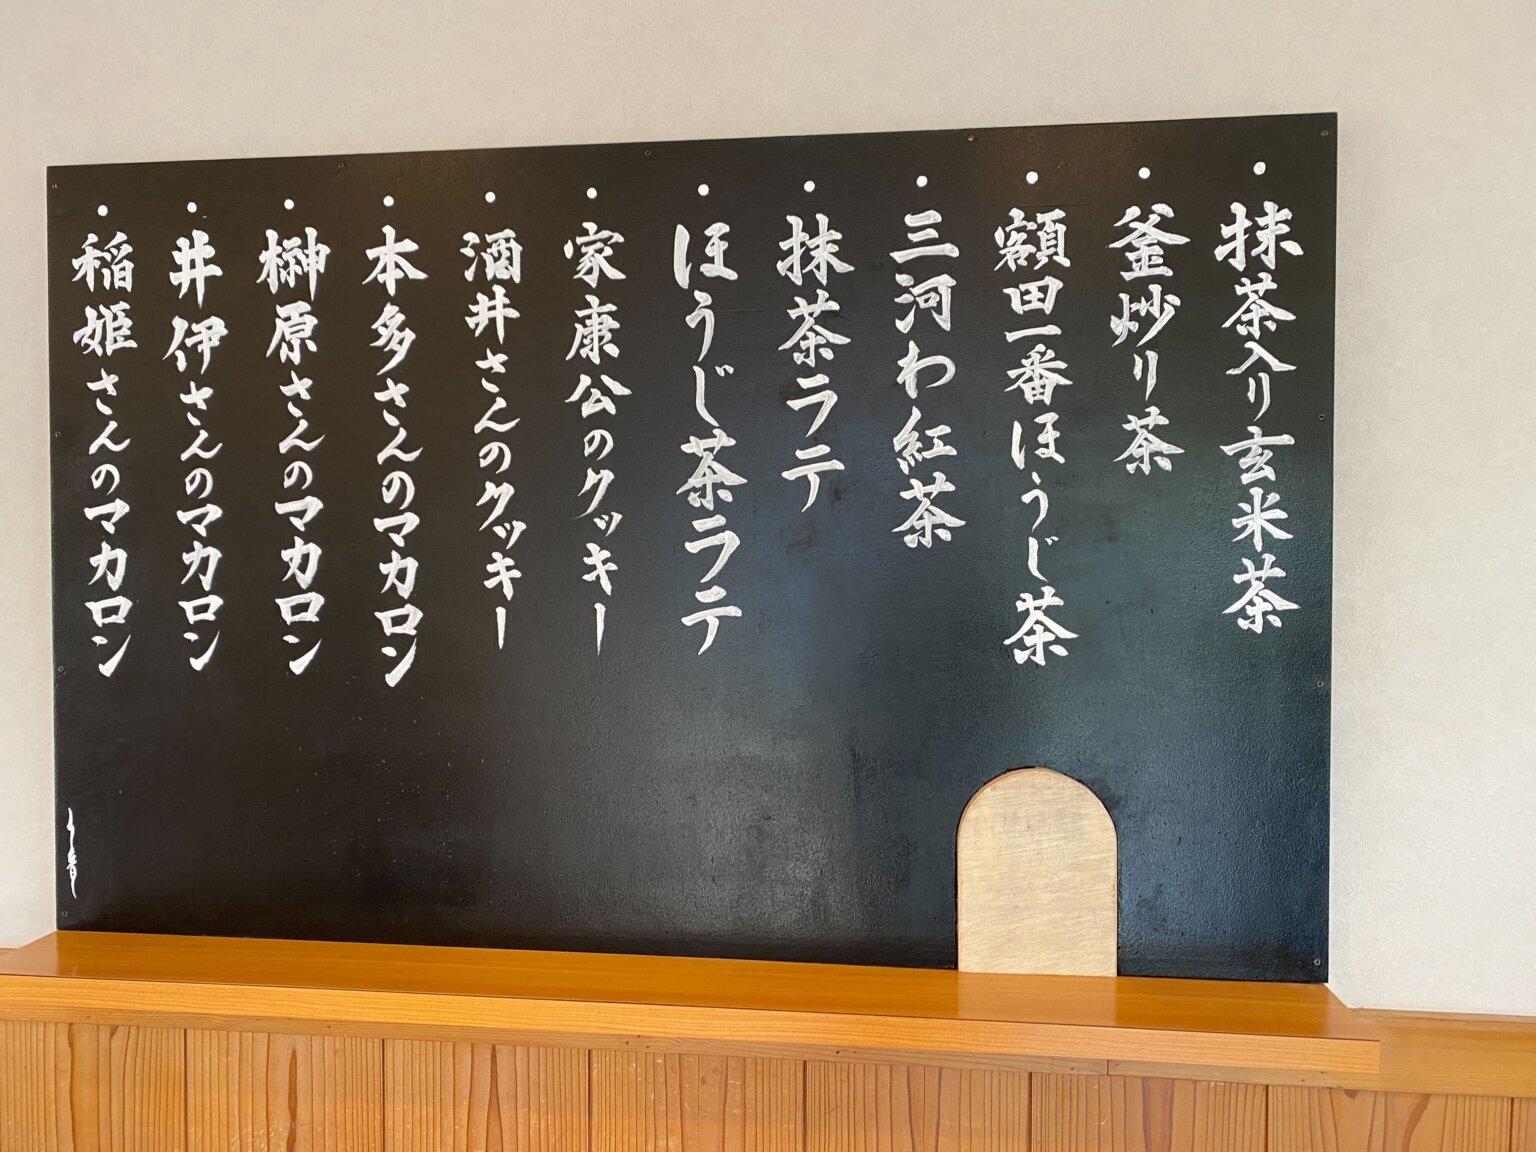 ・抹茶入り玄米茶
・釜炒り茶
・額田一番ほうじ茶
・三河わ紅茶
・抹茶ラテ
・ほうじ茶ラテ
・家康公のクッキー
・酒井さんのクッキー
・本多さんのマカロン
・榊原さんのマカロン
・井伊さんのマカロン
・稲姫さんのマカロン